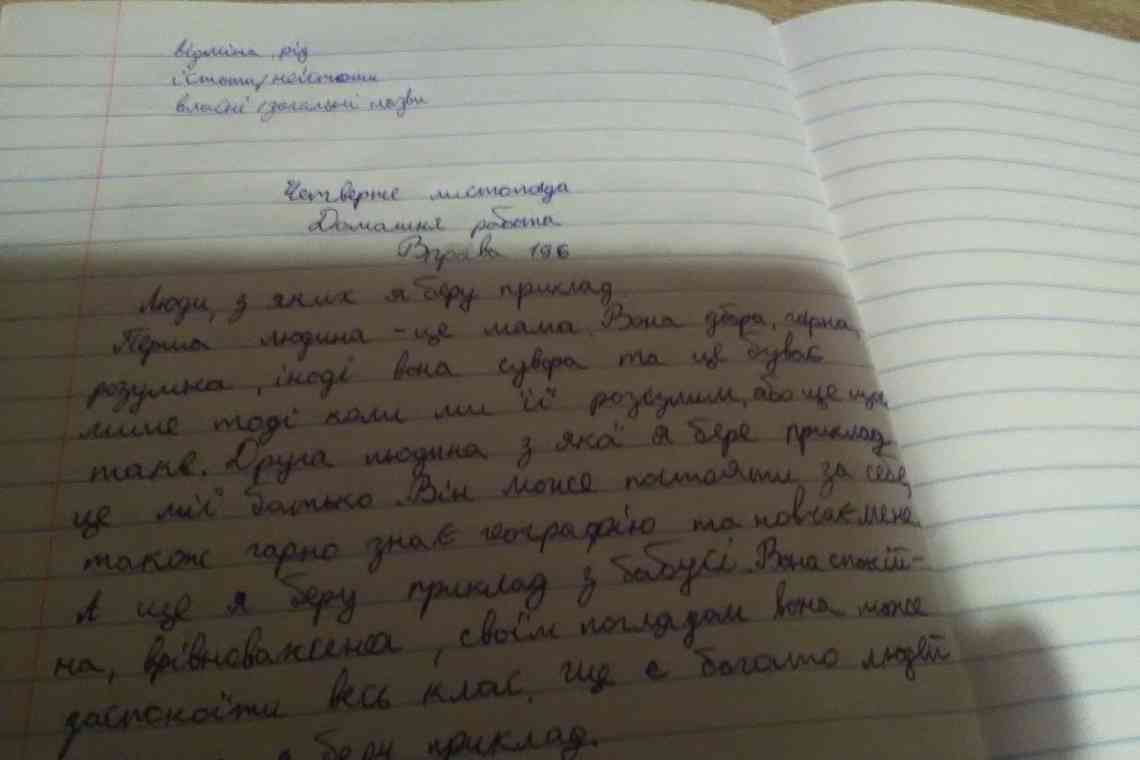 відміна, рід
істоти/неістоти
власні /загальні назви
Четверте листопада
Домашня робота
Вправа 196
Люди, з яких я беру приклад
Перша людина - це мама. Вона добра, гарна,
розумна, іноді вона сувора та це буває
лише тоді коли ми її розізлим, або ще щи
таке. Друга людина з якої я бере приклад
це мій батько. Він може постояти за себе,
також гарно знає географію та навчає мене.
А ще я беру приклад з бабусі. Вона спокій-
на, врівноважена, своїм поглядом вона може
заспокоїти весь клас. Ще є богато людей
я беру приклад.